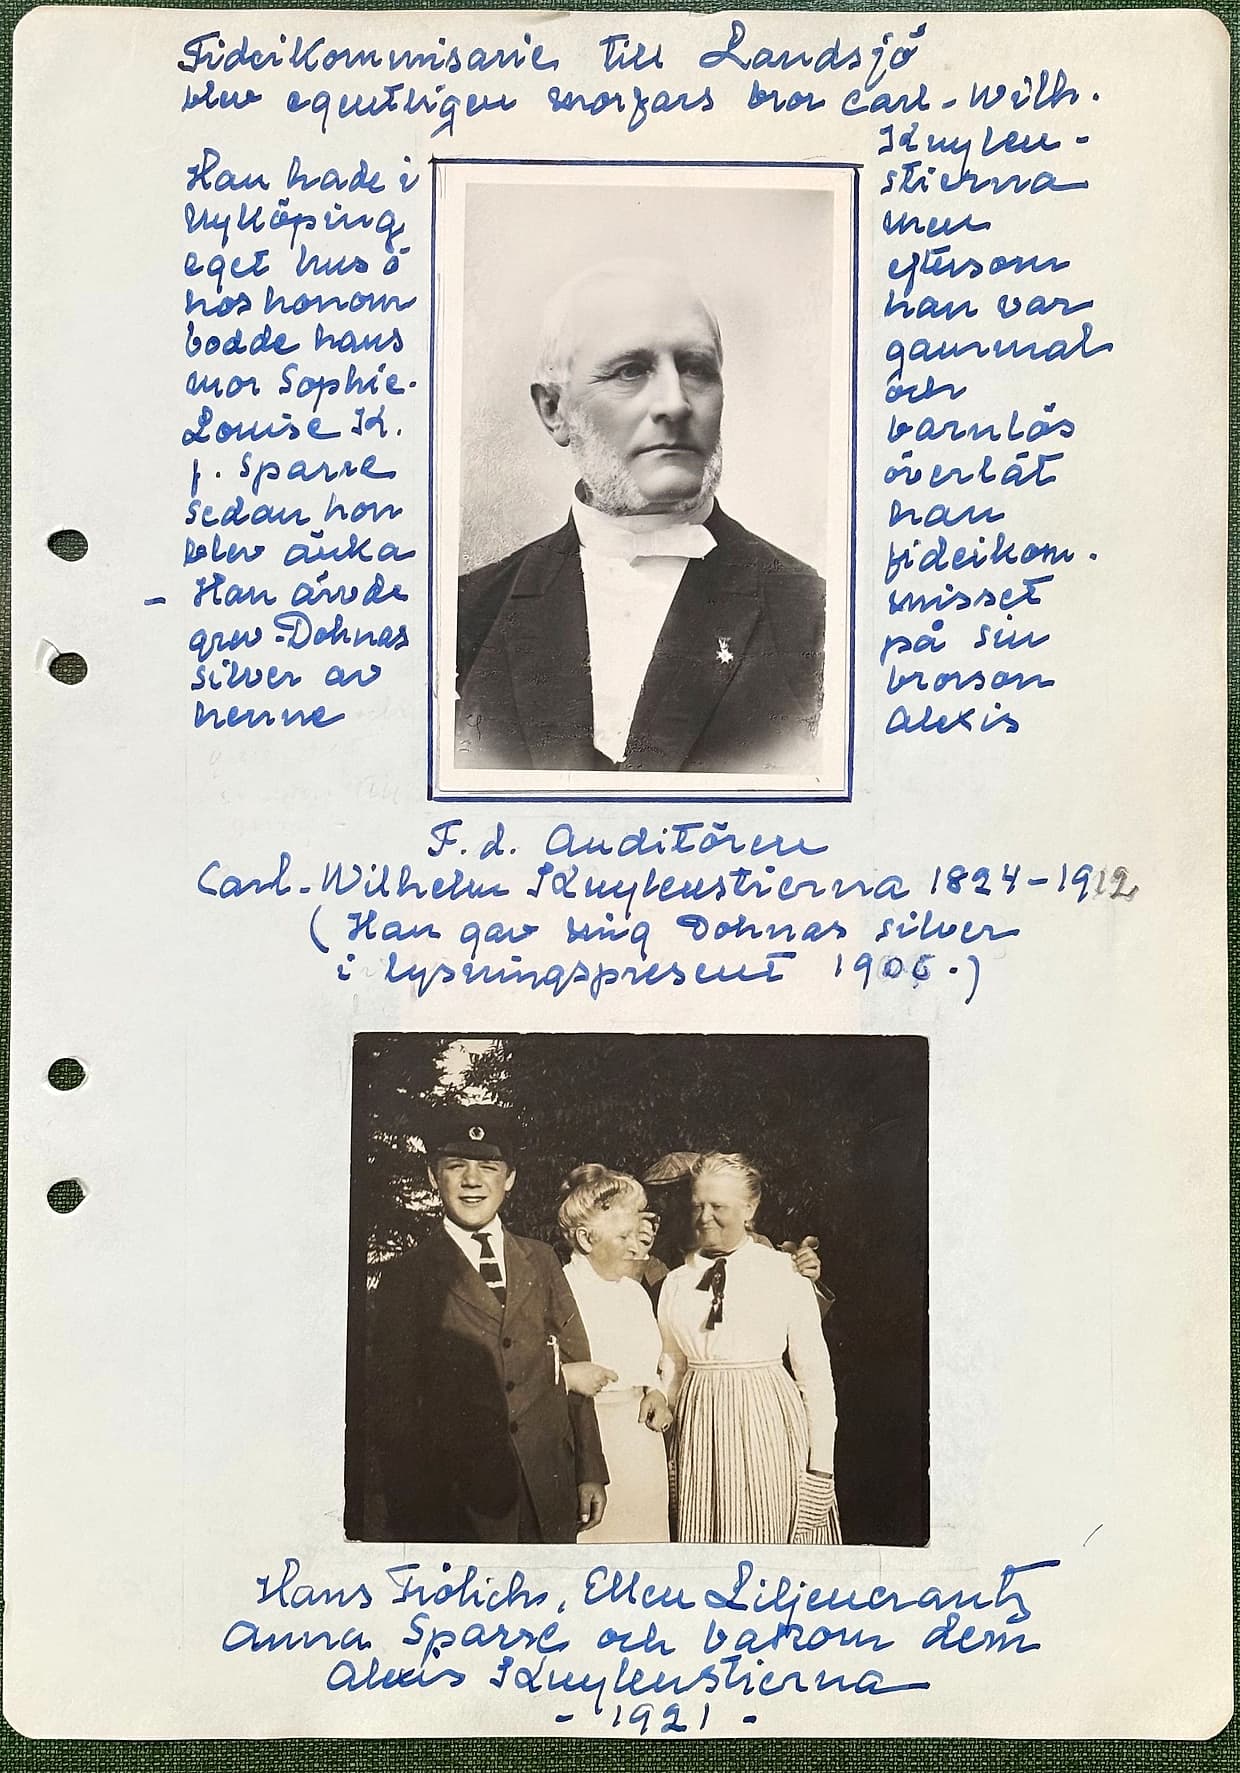 Fideikommisarie till Landsjö
blev egentligen morfars bror Carl-Wilh.
Kuylen-
stierna
men
eftersom
han var
gammal
och
barnlös
överlät
han
fideikom-
misset
på sin
brorson
Alexis
Han hade i
Nyköping
eget hus o
hos honom
bodde hans
mor Sophie-
Louise K.
f. Sparre
sedan hon
blev änka
- Han ärvde
grev Dohnas
silver av
henne
F. d. Auditören
Carl-Wilhelm Kuylenstierna 1824-1912
(Han gav mig Dohnas silver
i lysningspresent 1906.)
Hans Frölich, Ellen Liljencrantz
Anna Sparre och bakom dem
Alexis Kuylenstierna
- 1921 -